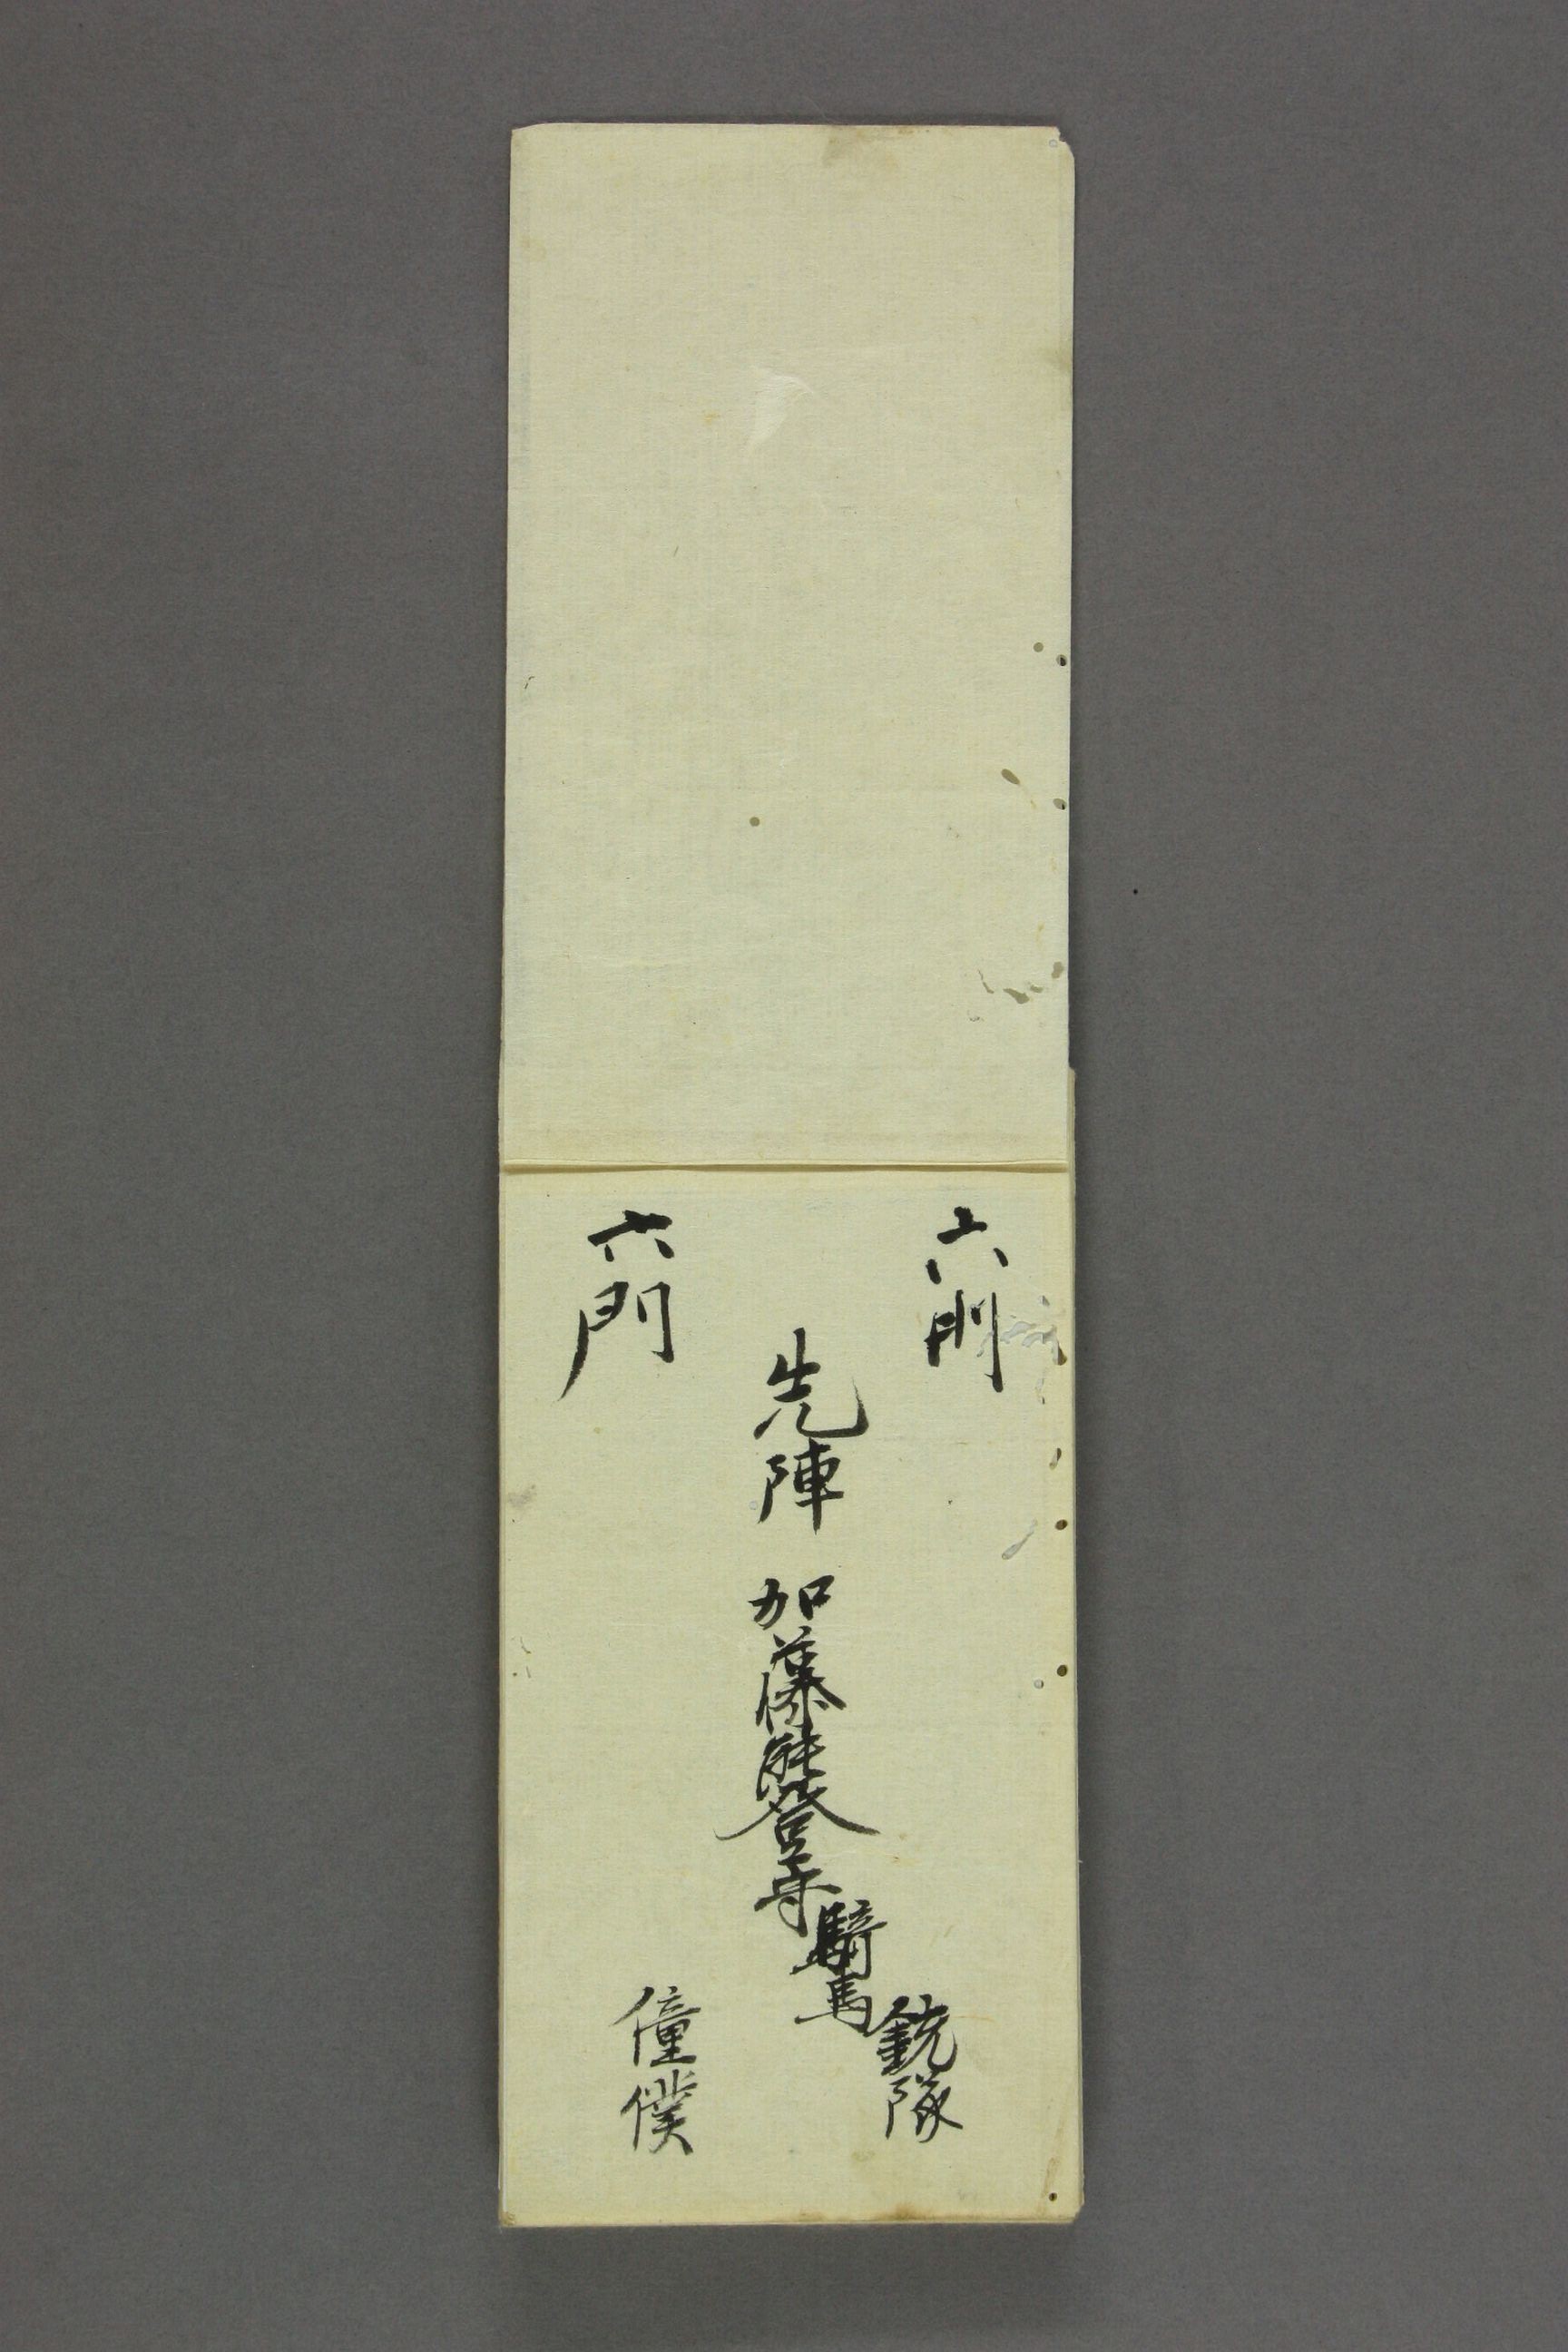 六門
先陣 加藤能登守
騎馬
銃隊
六門
僮僕